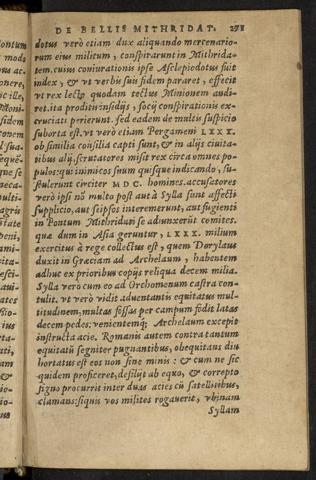 DE BELLIS MITHRIDAT.
dotus verò etiam dux aliquando mercenario-
rum eius militum, conspirarunt in Mithrida-
tem. cuius coniurationis ipse Asclepiodotus fuit
index, & vt verbis suis fidem pararet, effecit
vt rex lecto quodam tectus Minionem audi-
ret. ita proditi insidijs, socij conspirationis ex-
cruciati perierunt. sed eadem de multis suspicio
suborta est. vt verò etiam Pergameni LXXX.
ob similia consilia capti sunt, & in alijs ciuita-
tibus alij. scrutatores misit rex circa omnes po-
pulos: qui inimicos suum quisque indicando, su-
stulerunt circiter MDC. homines. accusatores
verò ipsi nō multo post aut à Sylla sunt affecti
supplicio, aut seipsos interemerunt, aut fugienti
in Pontum Mithridati se adiunxerūt comites.
quæ dum in Asia geruntur, LXXX. milium
exercitus à rege collectus est, quem Dorylaus
duxit in Græciam ad Archelaum, habentem
adhuc ex prioribus copijs reliqua decem milia.
Sylla verò cum eo ad Orchomenum castra con-
tulit. vt verò vidit aduentantis equitatus mul-
titudinem, multas fossas per campum fodit latas
decem pedes: venientemq; Archelaum excepit
instructa acie. Romanis autem contra tantum
equitatū segniter pugnantibus, obequitans diu
hortatus est eos non sine minis: & cum ne sic
quidem proficeret, desilijt ab equo, & correpto
signo procurrit inter duas acies cū satellitibus,
clamans: siquis vos milites rogauerit, vbinam
Syllam